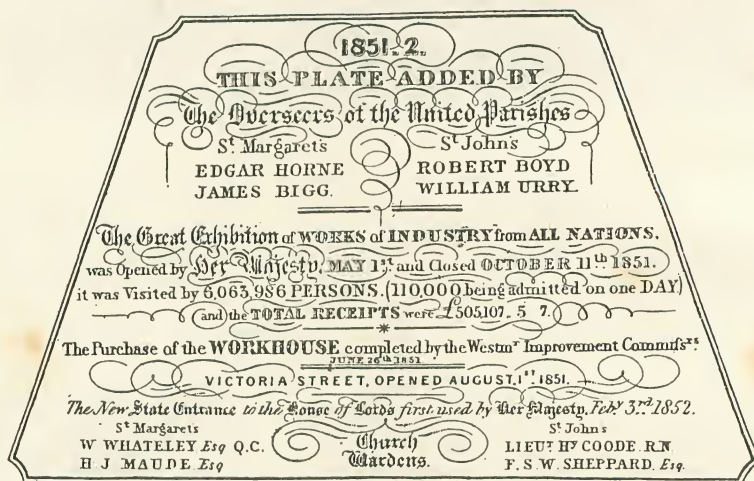 1851.2.
THIS PLATE ADDED BY
The Overseers of the United Parishes
St. Margarets St. Johns
EDGAR HORNE ROBERT BOYD
JAMES BIGG. WILLIAM URRY.
The Great Exhibition of WORKS of INDUSTRY from ALL NATIONS.
was Opened by Her Majesty, MAY 1st. and Closed OCTOBER 11th. 1851.
it was Visited by 6,063,986 PERSONS. (110,000 being admitted on one DAY)
and the TOTAL RECEIPTS were £505107. 5 7.
The Purchase of the WORKHOUSE completed by the Westmr. Improvement Commissrs.
JUNE 26th 1851
VICTORIA STREET, OPENED AUGUST. 1st 1851.
The New State Entrance to the House of Lords first used by Her Majesty, Feby. 3rd. 1852.
St Margarets St Johns
W WHATELEY Esq Q.C. Church LIEUT Hy COODE. R.N.
H J MAUDE Esq Wardens. F. S. W. SHEPPARD. Esq.